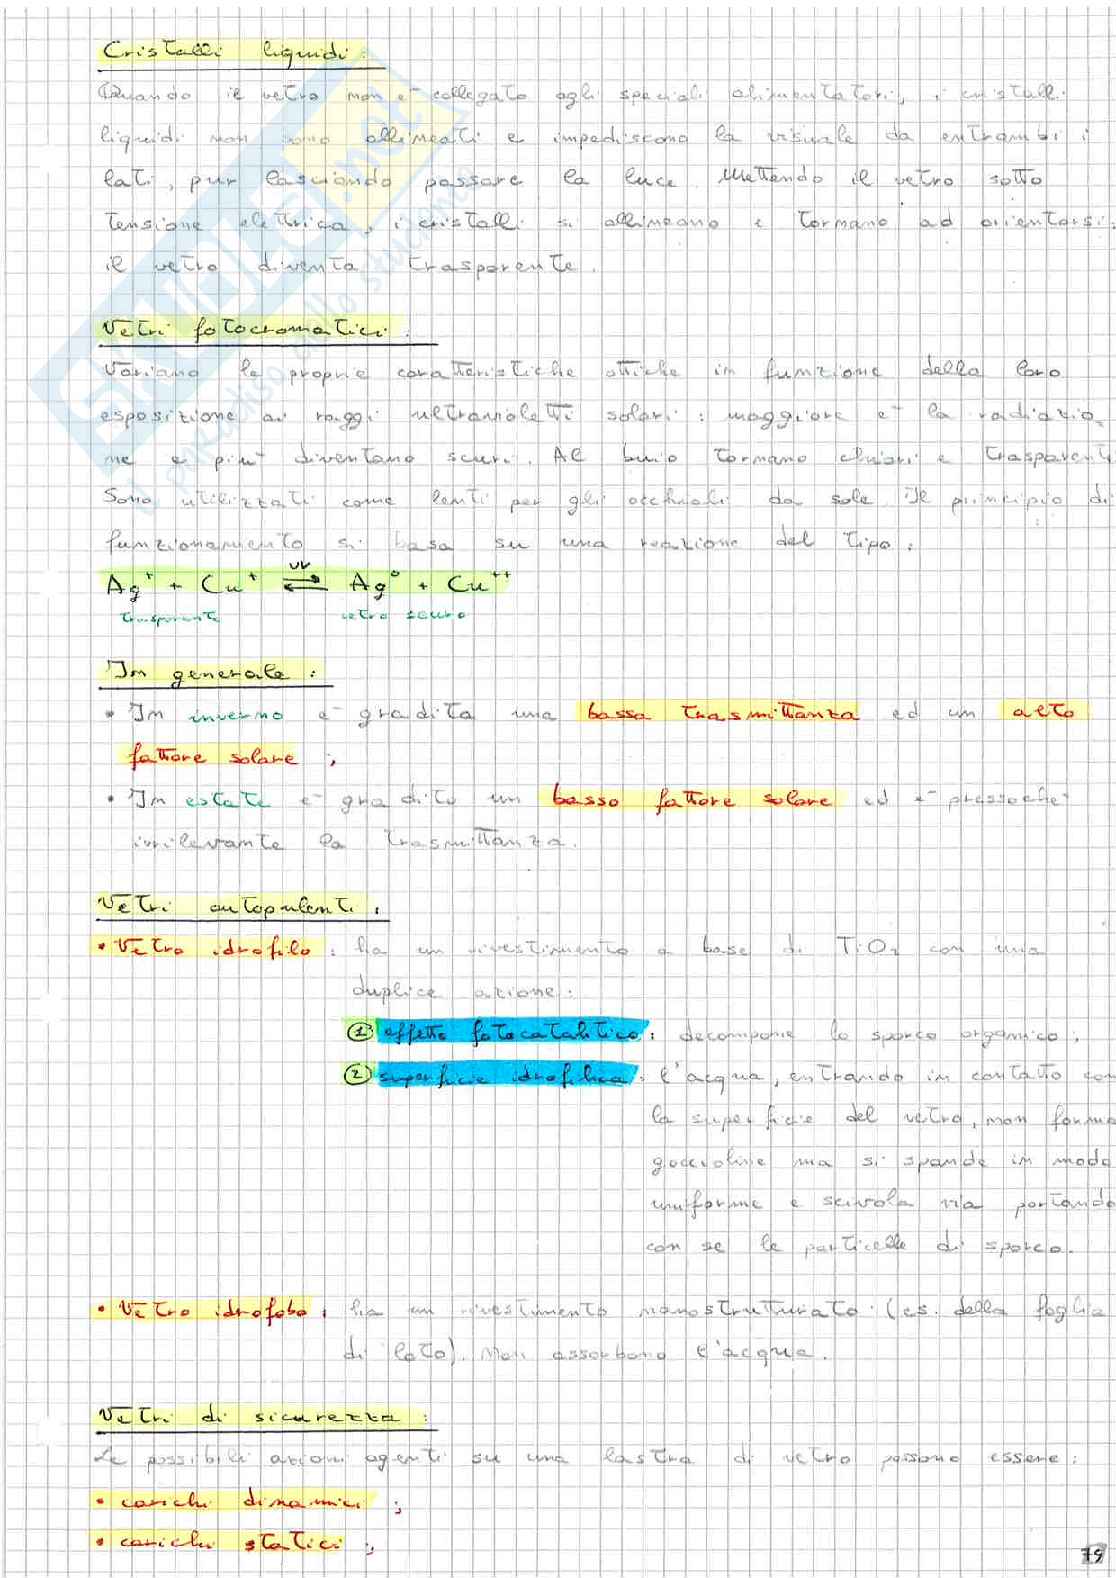 Cristalli liquidi:
Quando il vetro non è collegato agli speciali alimentatori, i cristalli
liquidi non sono allineati e impediscono la visuale da entrambi i
lati, pur lasciando passare la luce. Mettendo il vetro sotto
tensione elettrica, i cristalli si allineano e tornano ad orientarsi:
il vetro diventa trasparente.
Vetri fotocromatici:
Variano le proprie caratteristiche ottiche in funzione della loro
esposizione ai raggi ultravioletti solari: maggiore è la radiazio
ne e più diventano scuri. Al buio tornano chiari e trasparenti
Sono utilizzati come lenti per gli occhiali da sole. Il principio di
funzionamento si basa su una reazione del tipo:
UV
Ag⁺ + Cu⁺ ⇌ Ag⁰ + Cu⁺⁺
trasparente vetro scuro
In generale:
• In inverno è gradita una bassa trasmittanza ed un alto
fattore solare;
• In estate è gradito un basso fattore solare ed è pressoché
irrilevante la trasmittanza.
Vetri autopulenti:
• Vetro idrofilo: ha un rivestimento a base di TiO₂ con una
duplice azione:
① effetto fotocatalitico: decompone lo sporco organico.
② superficie idrofilica: l'acqua, entrando in contatto con
la superficie del vetro, non forma
goccioline ma si spande in modo
uniforme e scivola via portando
con sé le particelle di sporco.
• Vetro idrofobo: ha un rivestimento nanostrutturato (es. della foglia
di loto). Non assorbono l'acqua.
Vetri di sicurezza:
Le possibili azioni agenti su una lastra di vetro possono essere:
• carichi dinamici;
• carichi statici;
SKUOLA.net
il paradiso dello studente